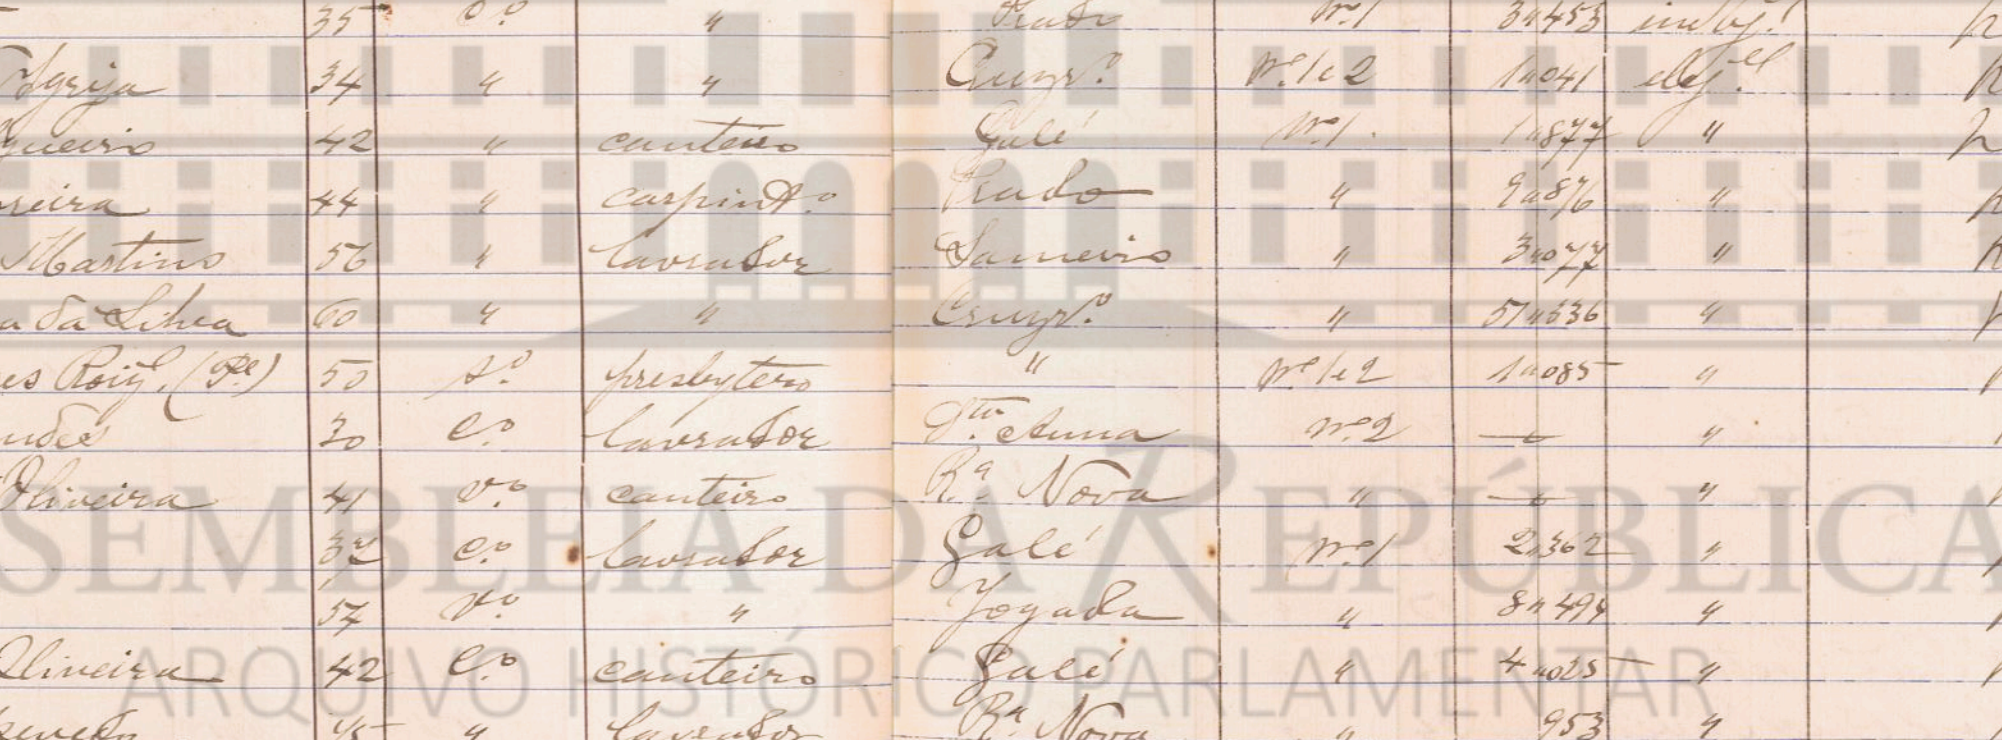 35 c.º " Prado nº1 3"453 ineleg.l
Igreja 34 " " Cruzr.º nº1e2 1"041 eleg.el
gueiro 42 " canteiro Galé nº1. 1"877 "
reira 44 " carpintº Prado " 9"876 "
Martins 56 " lavrador Lameiro " 3"077 "
a da Silva 60 " " Cruzr.º " 51"336 "
es Roiz, (Pe) 50 s.º presbytero " nº1e2 1"085 "
ndes 30 c.º lavrador Sta. Anna nº2 — "
Oliveira 41 v.º canteiro R.a Nova " — "
37 c.º lavrador Galé nº1 2"362 "
57 v.º " Jogada " 8"494 "
Oliveira 42 c.º canteiro Galé " 4"025 "
zevedo 45 " lavrador R.a Nova " 953 "
ASSEMBLEIA DA REPÚBLICA
ARQUIVO HISTÓRICO PARLAMENTAR